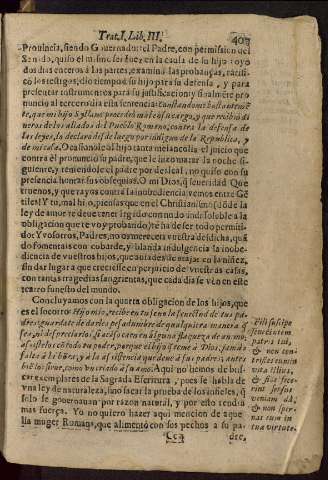 Trat. I. Lib. III. 403
Prouincia, siendo Gouernador el Padre, con permission del
Senado, quiso el mismo ser Iuez en la causa de su hijo: oyò
dos dias enteros à las partes, examinò las probanças, ratifi-
cò los testigos, dio tiempo à su hijo para su defensa, y para
presentar instrumentos para su justificacion; y finalmente pro-
nunciò al tercero dia esta sentencia: constandome bastanteme-
te, que mi hijo Syllano procediò mal en su cargo, y que recibiò di-
neros de los aliados del Pueblo Romano, contra la defensa de
las leyes, lo declaro desde luego por indigno de la Republica, y
de mi casa. Ocasionòle al hijo tanta melancolia el juicio que
contra èl pronunciò su padre, que le hizo matar la noche si-
guiente, y teniendole el padre por desleal, no quiso con su
presencia honrar sus obsequias. O mi Dios, què seueridad! Que
truenos, y que rayos contra la inobediencia, vemos entre Gen-
tiles! Y tu, mal hijo, piensas que en el Christianismo (adonde la
ley de amor te deue tener ligado con nudo indissoluble à la
obligacion que te voy probando) te ha de ser todo permiti-
do? Y vosotros, Padres, no os merecerà vuestra desdicha, quã-
do fomentais con cobarde, y blanda indulgencia la inobe-
diencia de vuestros hijos, que auiades de atajar en la niñez,
sin dar lugar à que creciesse en perjuicio de vuestras casas,
con tantas tragedias sangrientas, que cada dia se vèn en este
teatro funesto del mundo.
Concluyamos con la quarta obligacion de los hijos, que
es el socorro: Hijo mio, recibe en tu seno la senectud de tus pa-
dres: guardate de darles pesadumbre de qualquiera manera q
sea; ni desprecies lo, si acaso caen en alguna flaqueza de animo:
assistelos cõ todo tu poder, porque el hijo q̃ teme à Dios, jamàs
falta à la honra, y à la assistencia que deue à sus padres; antes
biẽ los sirue, como vn criado à su amo. Aqui no hemos de bus-
car exemplares de la Sagrada Escritura, pues se habla de
vna ley de naturaleza, sino sacar la prueba de los infieles, q̃
solo se gouernauan por razon natural, y por esto tendràn
mas fuerça. Yo no quiero hazer aqui mencion de aque-
lla muger Romana, que alimentò con sus pechos a su pa-
Cc3 dre,
Fili suscipe
senectutem
patris tui,
& non con-
tristes eum in
vita illius,
& si defece-
rit sensu,
veniam da,
& non sper-
nas eum in
tua virtute.